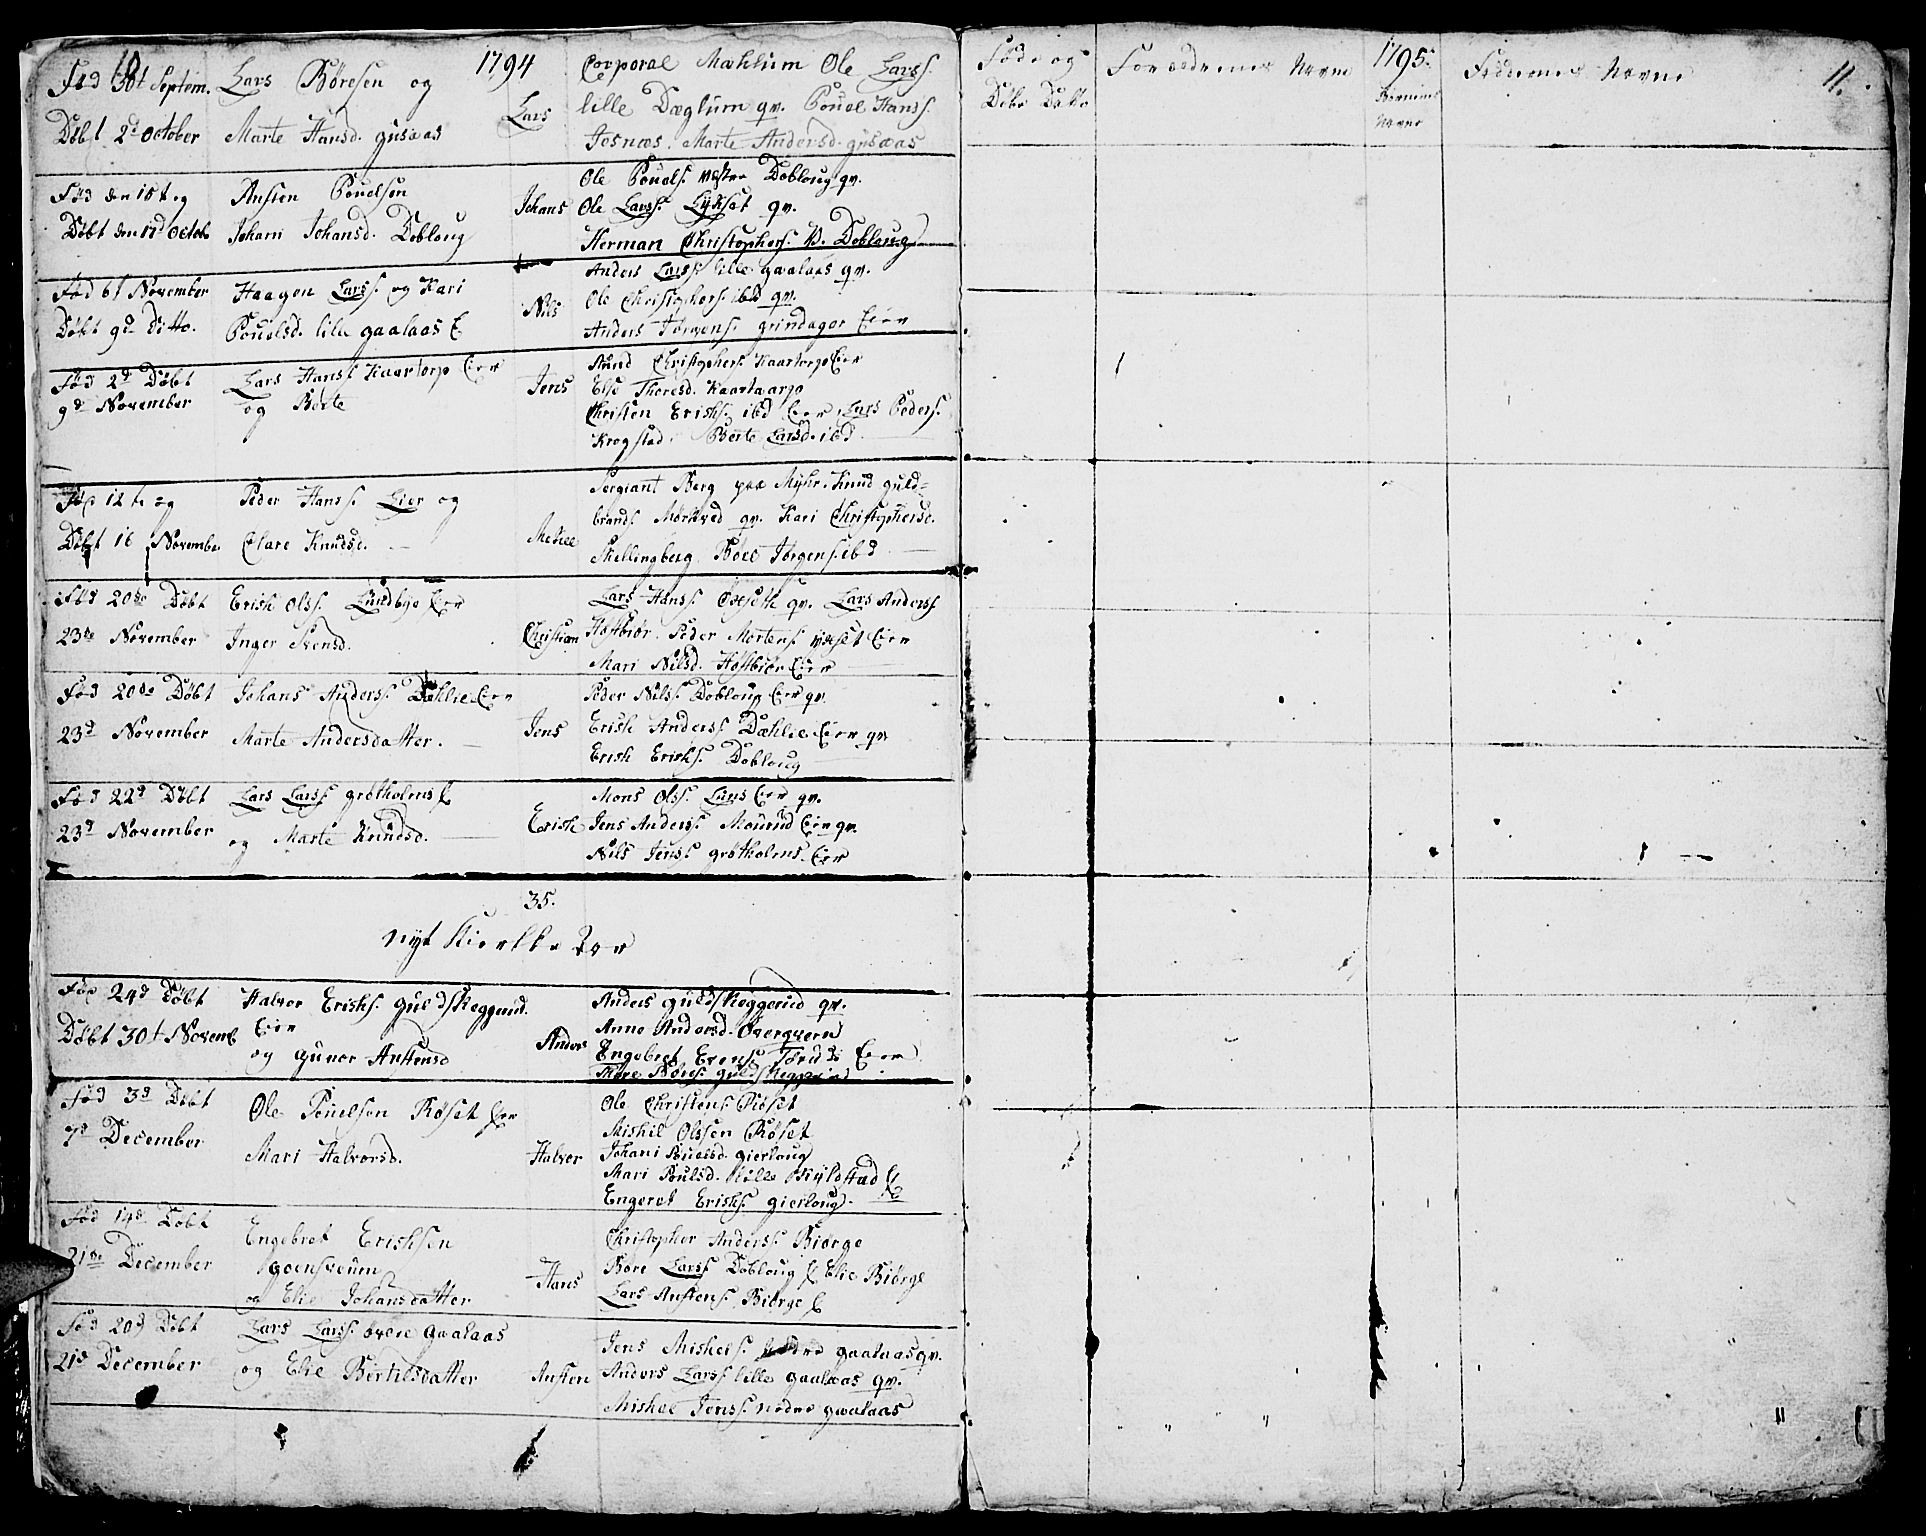 10
1794
Fød 30t Septem.
Døbt 2d October
Lars Børesen og
Marte Hansd. gusaas
Lars
Corporal Mæhlum Ole Larss.
lille Dæglum gm. Pouel Hanss.
Josnæs. Marte Andersd. gusaas
Fød den 15t og
Døbt den 17d Octob
Ansten Pouelsen
Johani Johansd. Dobloug
Johans
Ole Pouels. vestre Dobloug gm.
Ole Larss. Lykset gm.
Herman Christophers. N. Dobloug
Fød 6t November
Døbt 9d Ditto.
Haagen Larss. og Kari
Pouelsd. lille gaalaas E
Nils
Anders Larss. lille gaalaas gm.
Ole Christophers. ibd gm.
Anders Jørgens. grindager Eier
Fød 2d Døbt
9d November
Lars Hanss. Kaartorp Eier
og Berte
Jens
Amund Christophers. Kaartorp Eier
Else Thoresd. Kaartaarp
Christen Eriks. ibd Eier Lars Peders.
Krogstad. Berte Larsd. ibd
Fød 12te og
Døbt 16 Novembe.
Peder Hanss. Lier og
Clare Knudsd.
Sergiant Berg paa Myhr. Knud guld=
brands. Mørkved gm. Kari Christophersd.
Skellingberg Boel Jørgens. ibd
Fød 20de Døbt
23de November
Erik Olss. Lundbye Eier
Inger Svensd.
Christian
Lars Hanss. gm. Lars Anderss
Høstbiør. Peder Mortens. Eier
Mari Nilsd. Høstbiør Eier
Fød 20de Døbt
23d November
Johans Anderss. Dæhlie Eier
Marte Andersdatter.
Jens
Peder Nilss. Dobloug Eier gm.
Erik Anderss. Dæhlie Eier gm
Erik Eriks. Dobloug
Fød 22d Døbt
23d November
Lars Larss. grøtholms E
og Marte Knudsd.
Erik
Mons Olss. Luns Eier gm.
Jens Anderss. Mourud Eier gm.
Nils Jenss. grøtholms. Eier
35.
nyt Kierkke Aar
Fød 24d Døbt
Døbt 30t Novemb
Halvor Eriks. guldskeggrud.
Eier
og gunor Anstensd
Anders
Anders guldskeggerud gm.
Anne Andersd. Overqvern
Engebret Evens. Torud Eier
guldskeggerud
Fød 3d Døbt
7d December
Ole Pouelsen Røset Eier
Mari Halvorsd.
Halvor
Ole Christens. Røset
Mikkil Olssen Røset
Johani Pouelsd. gierloug
Mari Poulsd. lille Kyldstad E
Engeret Eriks. gierloug.
Fød 14d Døbt
21de December
Engebret Eriksen
goensveum
og Elie Johansdatter
Hans
Christopher Anderss. Biørge
Bore Larss. Dobloug E Elie Biørge
Lars Anstens. Biørge E
Fød 20d Døbt
21d December
Lars Larss. øvere gaalaas
og Elie Bertilsdatter
Ansten
Jens Mikkels. nedre gaalaas gm.
Anders Larss. lille gaalaas gm.
Mikkel Jenss. nedre gaalaas
11.
1795.
Føde og
Døbe Datto
Forældrenes Navne
Børnenes
Navne
Faddernes Navne